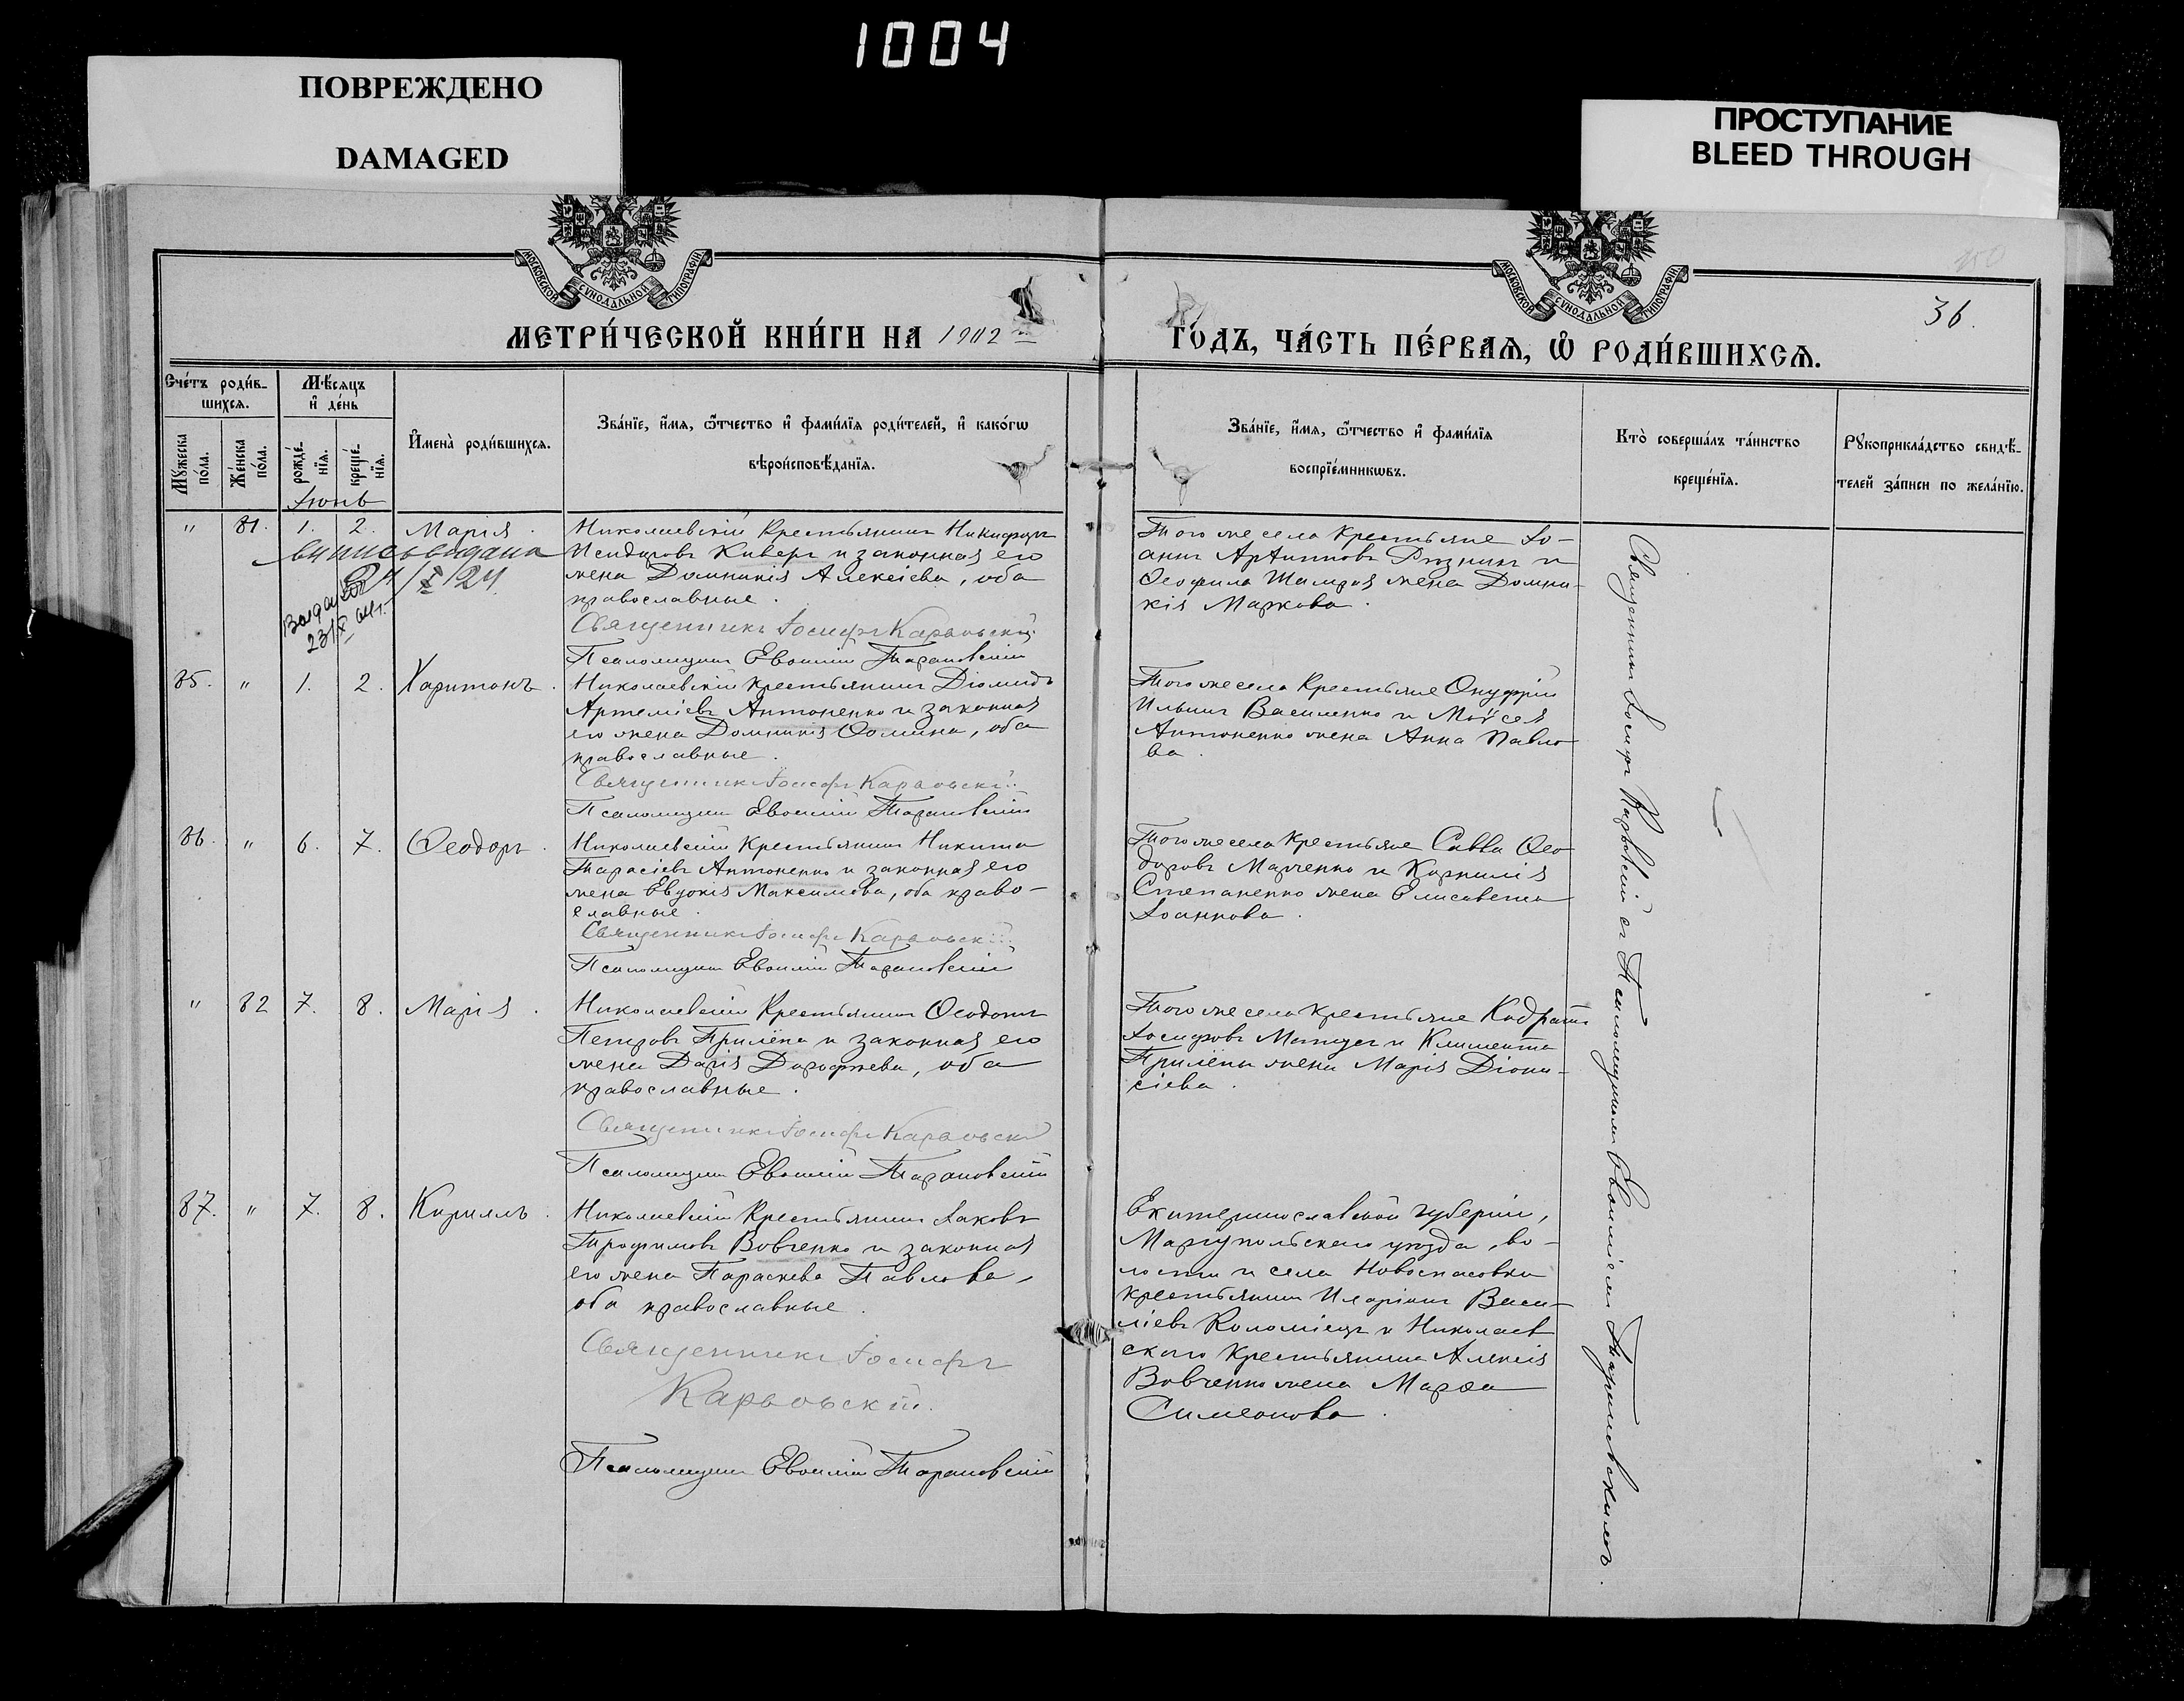 1004
ПОВРЕЖДЕНО
DAMAGED
ПРОСТУПАНИЕ
BLEED THROUGH
МОСКОВСКОЙ СѴНОДАЛЬНОЙ ТИПОГРАФІИ
МОСКОВСКОЙ СѴНОДАЛЬНОЙ ТИПОГРАФІИ
36.
МЕТРИ́ЧЕСКОЙ КНИ́ГИ НА 1902 й
ГО́ДЪ, ЧА́СТЬ ПЕ́РВАѦ, Ѡ҆ РОДИ́ВШИХСѦ.
Счётъ роди́в-
шихсѧ.
Мѣ́сѧцъ
и҆ де́нь
Мꙋ́жеска по́ла.
Же́нска по́ла.
рожде́-
нїѧ.
креще́-
нїѧ.
И҆мена̀ роди́вшихсѧ.
Зва́нїе, и҆́мѧ, ѻ҆́тчество и҆ фами́лїѧ роди́телей, и҆ како́гѡ
вѣроисповѣ́данїѧ.
Зва́нїе, и҆́мѧ, ѻ҆́тчество и҆ фами́лїѧ
воспрїе́мникѡвъ.
Кто̀ соверша́лъ та́инство
креще́нїѧ.
Рꙋкоприкла́дство свидѣ́-
телей за́писи по жела́нїю.
Іюнь
" 81. 1. 2. Марія.
Николаевскій Крестьянинъ Никифоръ
Исидоровъ Киверъ и законная его
жена Домникія Алексіева, оба
православные.
Священникъ Іосифъ Карповскій
Псаломщикъ Евѳимій Тарановскій
Того же села Крестьяне Іо-
аннъ и
Ѳеофила жена Домни-
кія Маркова.
выпись выдана
24/X/24
23/X
85. " 1. 2. Харитонъ.
Николаевскій Крестьянинъ Діомидъ
Артеміевъ Антоненко и законная
его жена Домникія Ѳомина, оба
православные.
Священникъ Іосифъ Карповскій
Псаломщикъ Евѳимій Тарановскій
Того же села Крестьяне Онуфрій
Ильинъ Василенко и Моѵсея
Антоненко жена Анна Павло-
ва.
86. " 6. 7. Ѳеодоръ.
Николаевскій Крестьянинъ Никита
Тарасіевъ Антоненко и законная его
жена Евдокія Максимова, оба право-
славные.
Священникъ Іосифъ Карповскій
Псаломщикъ Евѳимій Тарановскій
Того же села Крестьяне Савва Ѳео-
доровъ Марченко и Корнилія
Степаненко жена Елисавета
Іоаннова.
" 82 7. 8. Марія.
Николаевскій Крестьянинъ Ѳеодотъ
Петровъ Прилёпа и законная его
жена Дарія Дороѳеева, оба
православные.
Священникъ Іосифъ Карповскій
Псаломщикъ Евѳимій Тарановскій
Того же села Крестьяне Кодратъ
Іосифовъ и Климента
Прилёпы жена Марія Діони-
сіева.
87. " 7. 8. Кириллъ.
Николаевскій Крестьянинъ Іаковъ
Трофимовъ Вовченко и законная
его жена Параскева Павлова,
оба православные.
Священникъ Іосифъ
Карповскій.
Псаломщикъ Евѳимій Тарановскій
Екатеринославской губерніи,
Маріупольскаго уѣзда, во-
лости и села Новоспасовки
крестьянинъ Иларіонъ Васи-
ліевъ Коломіецъ и Николаев
скаго Крестьянина Алексія
Вовченко жена Марѳа
Симеонова.
Священникъ Іосифъ Карповскій съ Псаломщикомъ Евѳиміемъ Тарановскимъ.